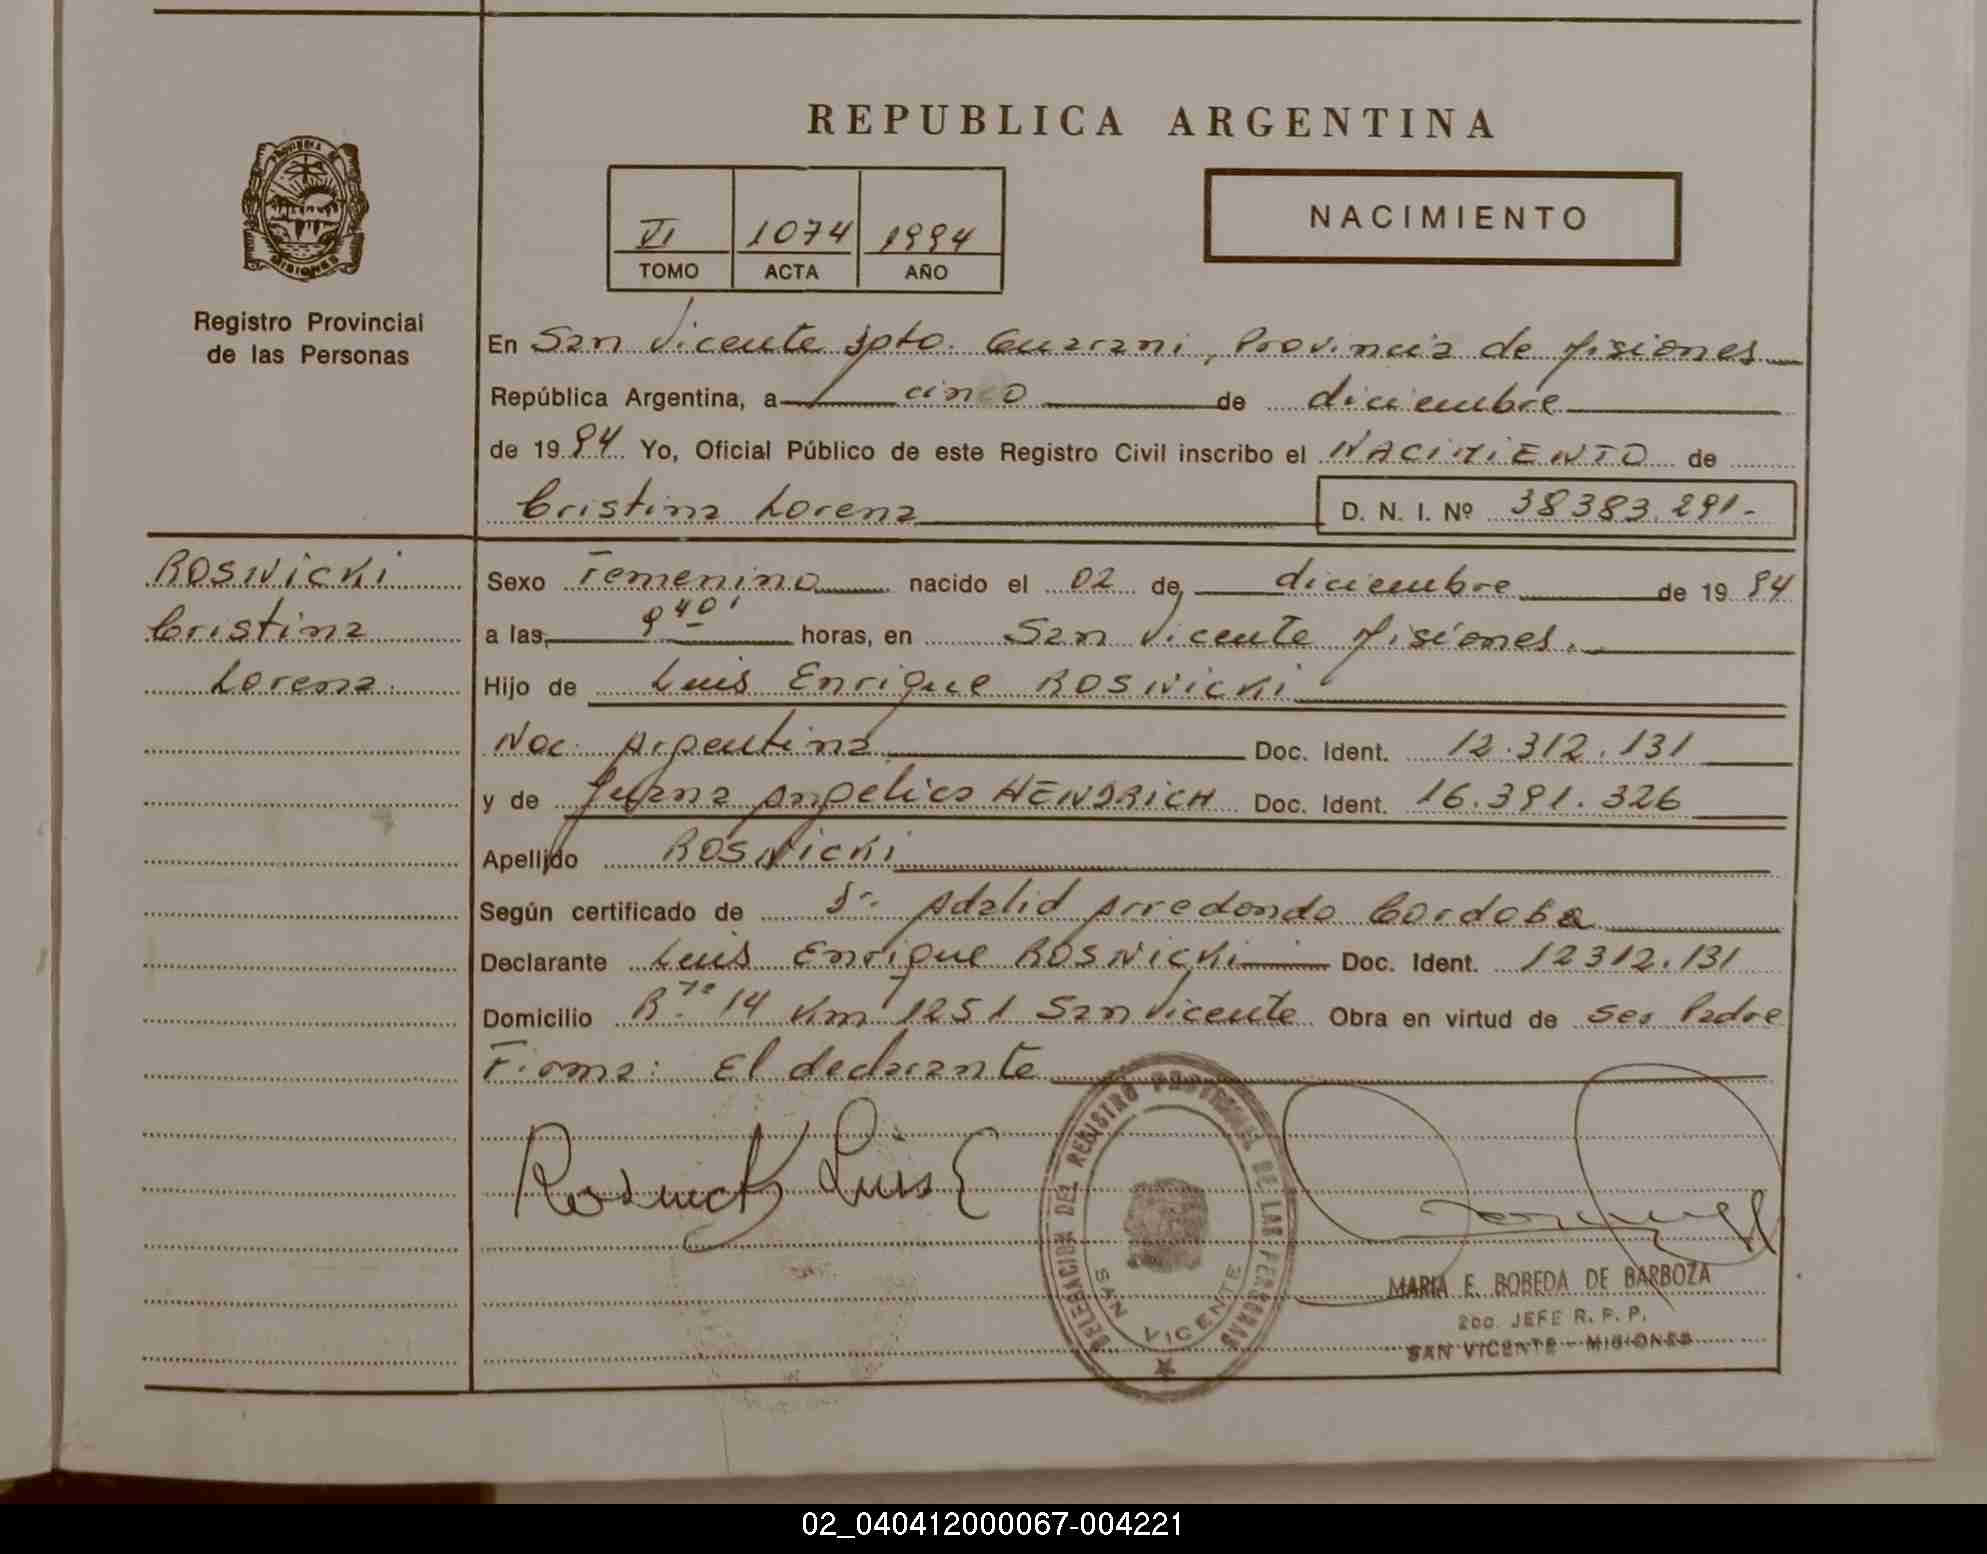 REPUBLICA ARGENTINA
VI 1074 1994
TOMO ACTA AÑO
NACIMIENTO
PROVINCIA DE
MISIONES
Registro Provincial
de las Personas
En San Vicente Dpto. Guarani, Provincia de Misiones
República Argentina, a cinco de diciembre
de 1994 Yo, Oficial Público de este Registro Civil inscribo el NACIMIENTO de
Cristina Lorena D. N. I. Nº 38383.291.-
ROSNicKi
Cristina
Lorena.
Sexo Femenino nacido el 02 de diciembre de 1994
a las 9 40' horas, en San Vicente Misiones.
Hijo de Luis Enrique ROSNicKi
Nac. Argentina Doc. Ident. 12.312.131
y de Juana Angelica HENDRICH Doc. Ident. 16.391.326
Apellido ROSNicKi
Según certificado de Dr. Adalid Arredondo Cordoba
Declarante Luis Enrique ROSNicKi Doc. Ident. 12312.131
Domicilio R.ta 14 Km 1251 San Vicente Obra en virtud de ser Padre
Firma: El declarante
Luis E
DELEGACION DEL REGISTRO PROVINCIAL DE LAS PERSONAS
SAN VICENTE
MARIA E. BOBEDA DE BARBOZA
2do. JEFE R. P. P.
SAN VICENTE - MISIONES
02_040412000067-004221